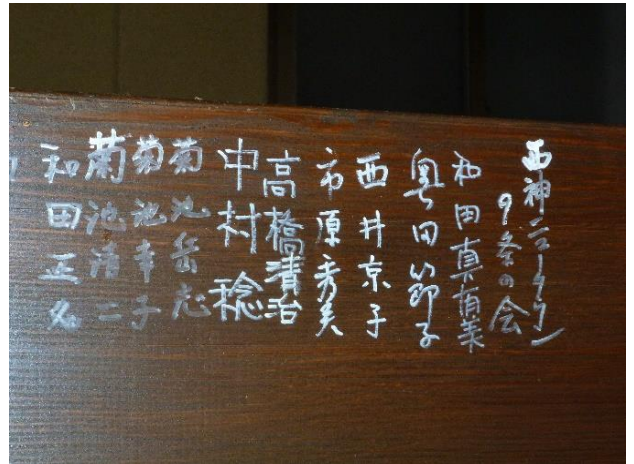 西神ニュータウン
9条の会
和田真有美
奥田節子
西井京子
市原秀美
高橋清治
中村稔
菊池岳志
菊池幸子
菊池清二
和田正